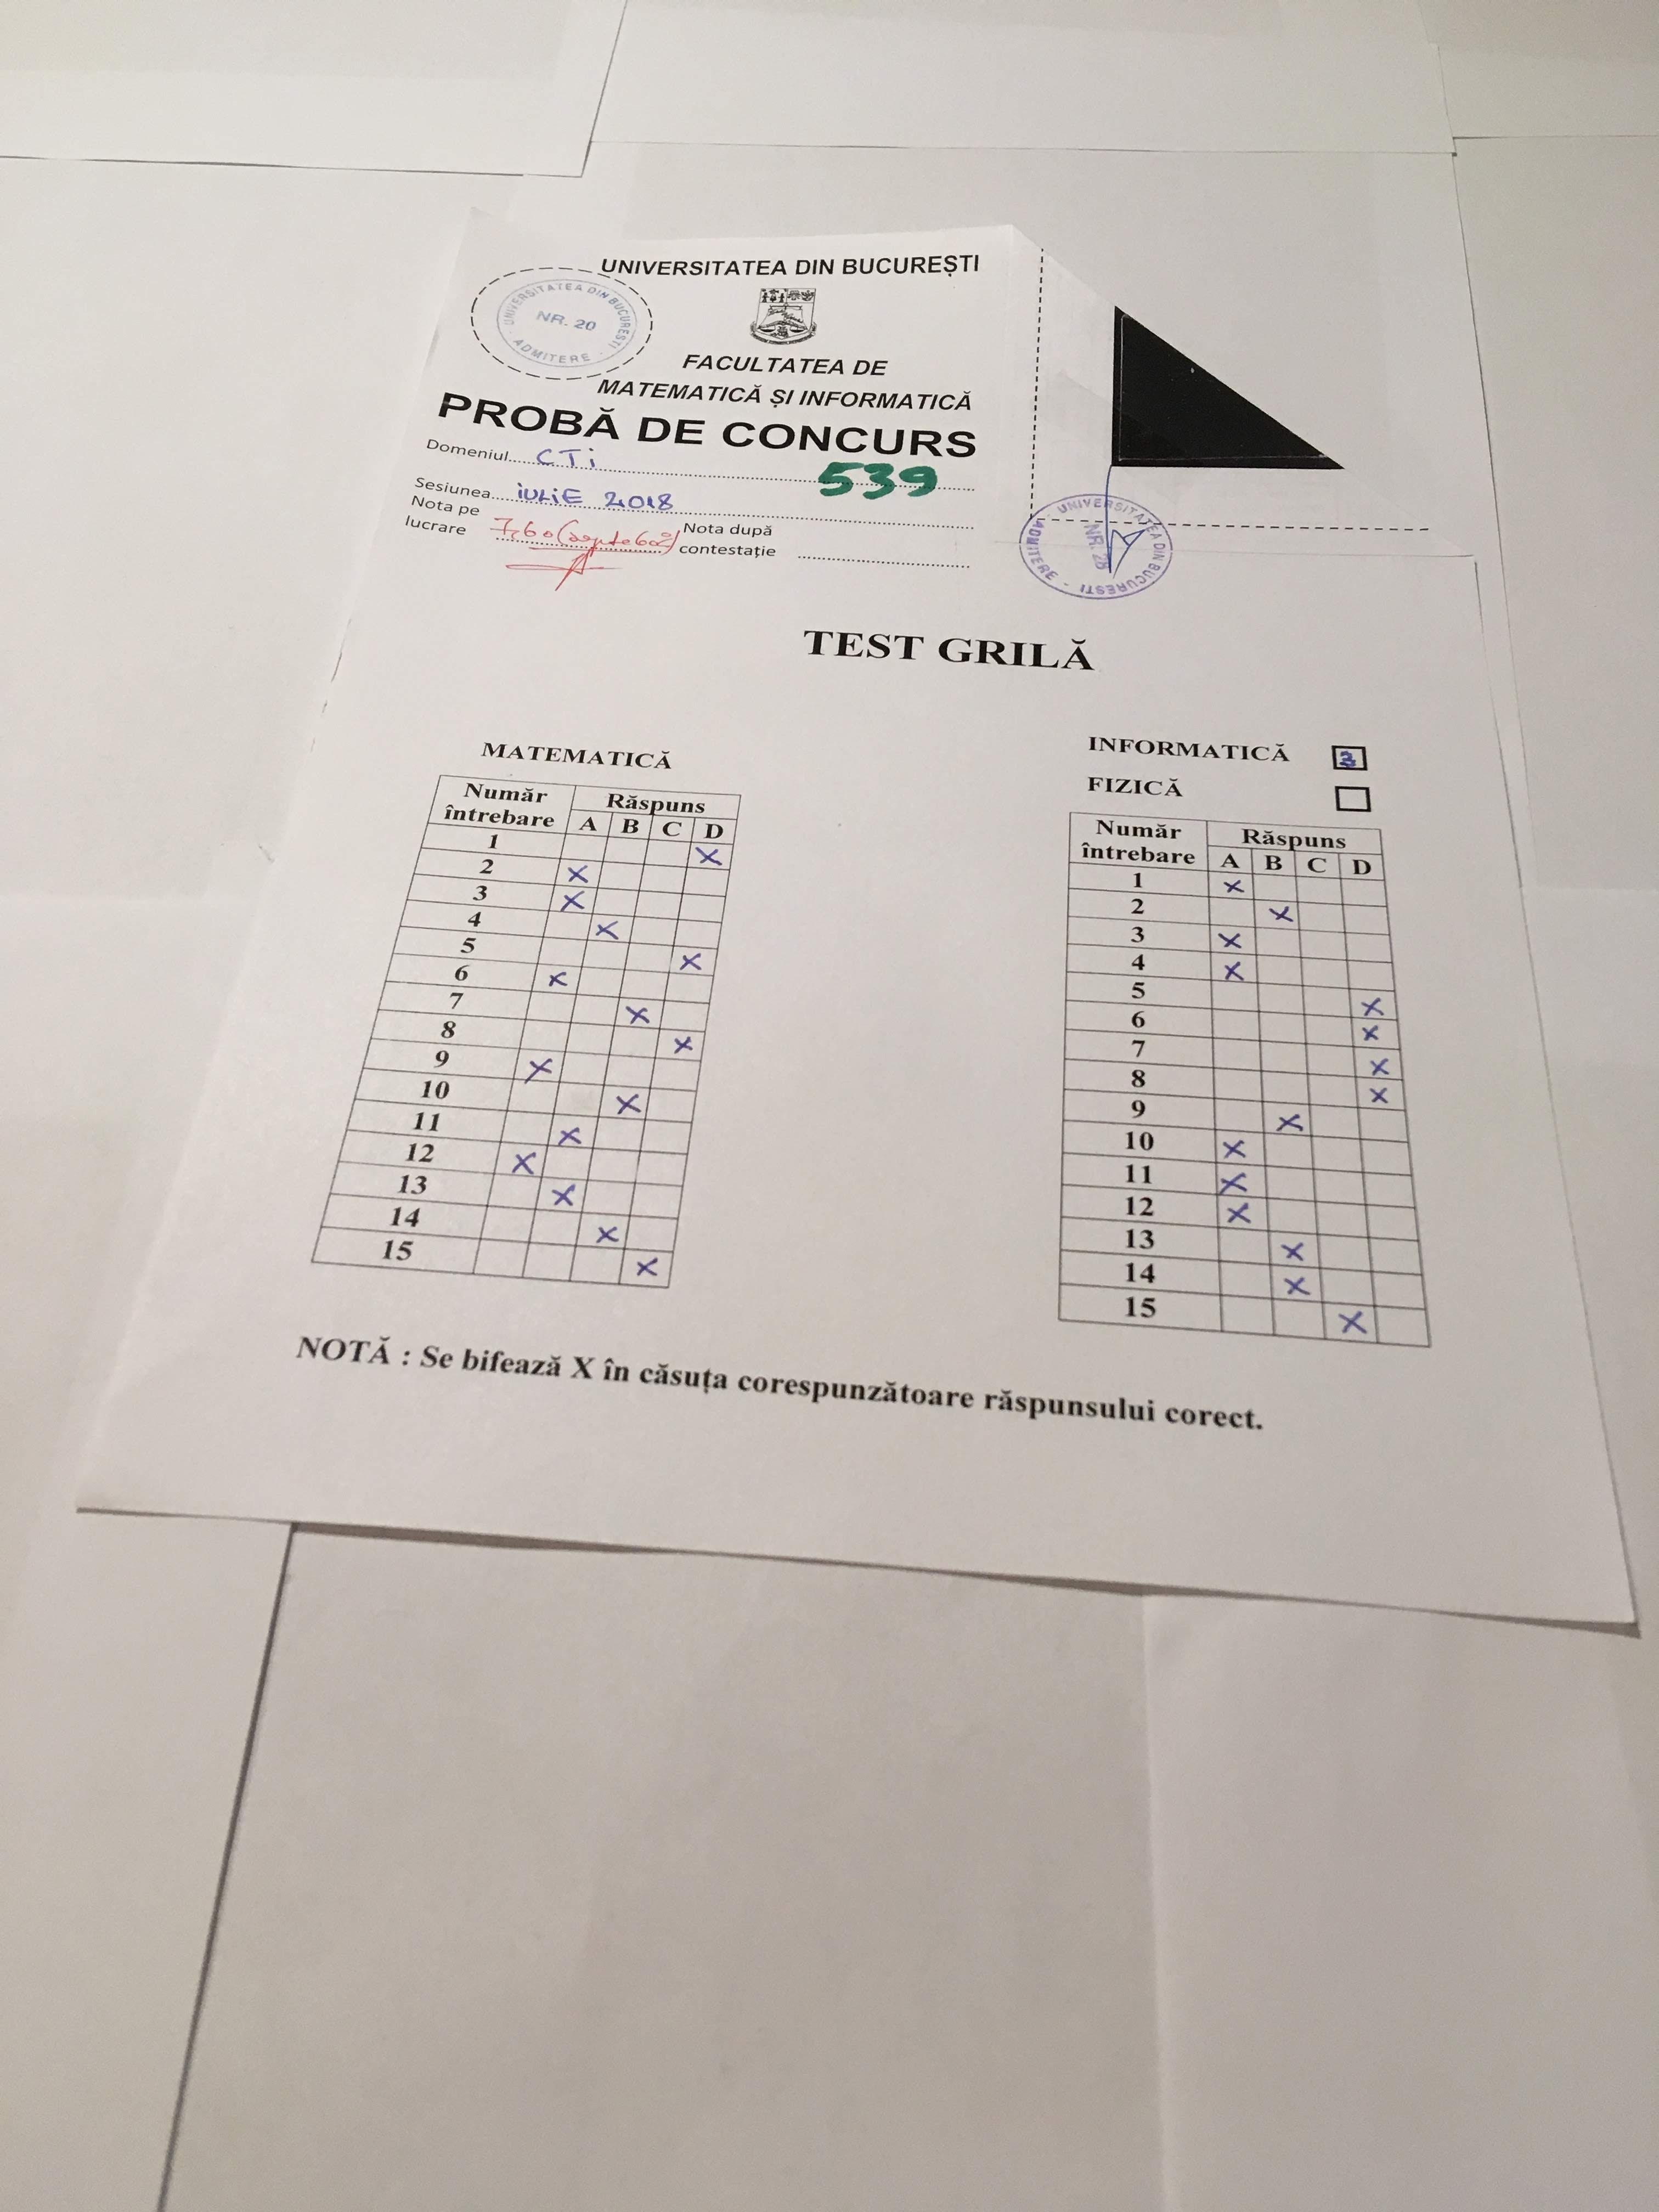 UNIVERSITATEA DIN BUCUREȘTI
UNIVERSITATEA DIN BUCURESTI
NR. 20
ADMITERE
FACULTATEA DE
MATEMATICĂ ȘI INFORMATICĂ
PROBĂ DE CONCURS
Domeniul..... CTi
539
Sesiunea..... iULiE 2018
Nota pe
lucrare 7,60 (șapte 60%)
Nota după
contestație
UNIVERSITATEA DIN BUCURESTI
ADMITERE
NR. 28
TEST GRILĂ
MATEMATICĂ
Număr întrebare Răspuns
A B C D
1 X
2 X
3 X
4 X
5 X
6 X
7 X
8 X
9 X
10 X
11 X
12 X
13 X
14 X
15 X
INFORMATICĂ 3
FIZICĂ
Număr întrebare Răspuns
A B C D
1 X
2 X
3 X
4 X
5 X
6 X
7 X
8 X
9 X
10 X
11 X
12 X
13 X
14 X
15 X
NOTĂ : Se bifează X în căsuța corespunzătoare răspunsului corect.